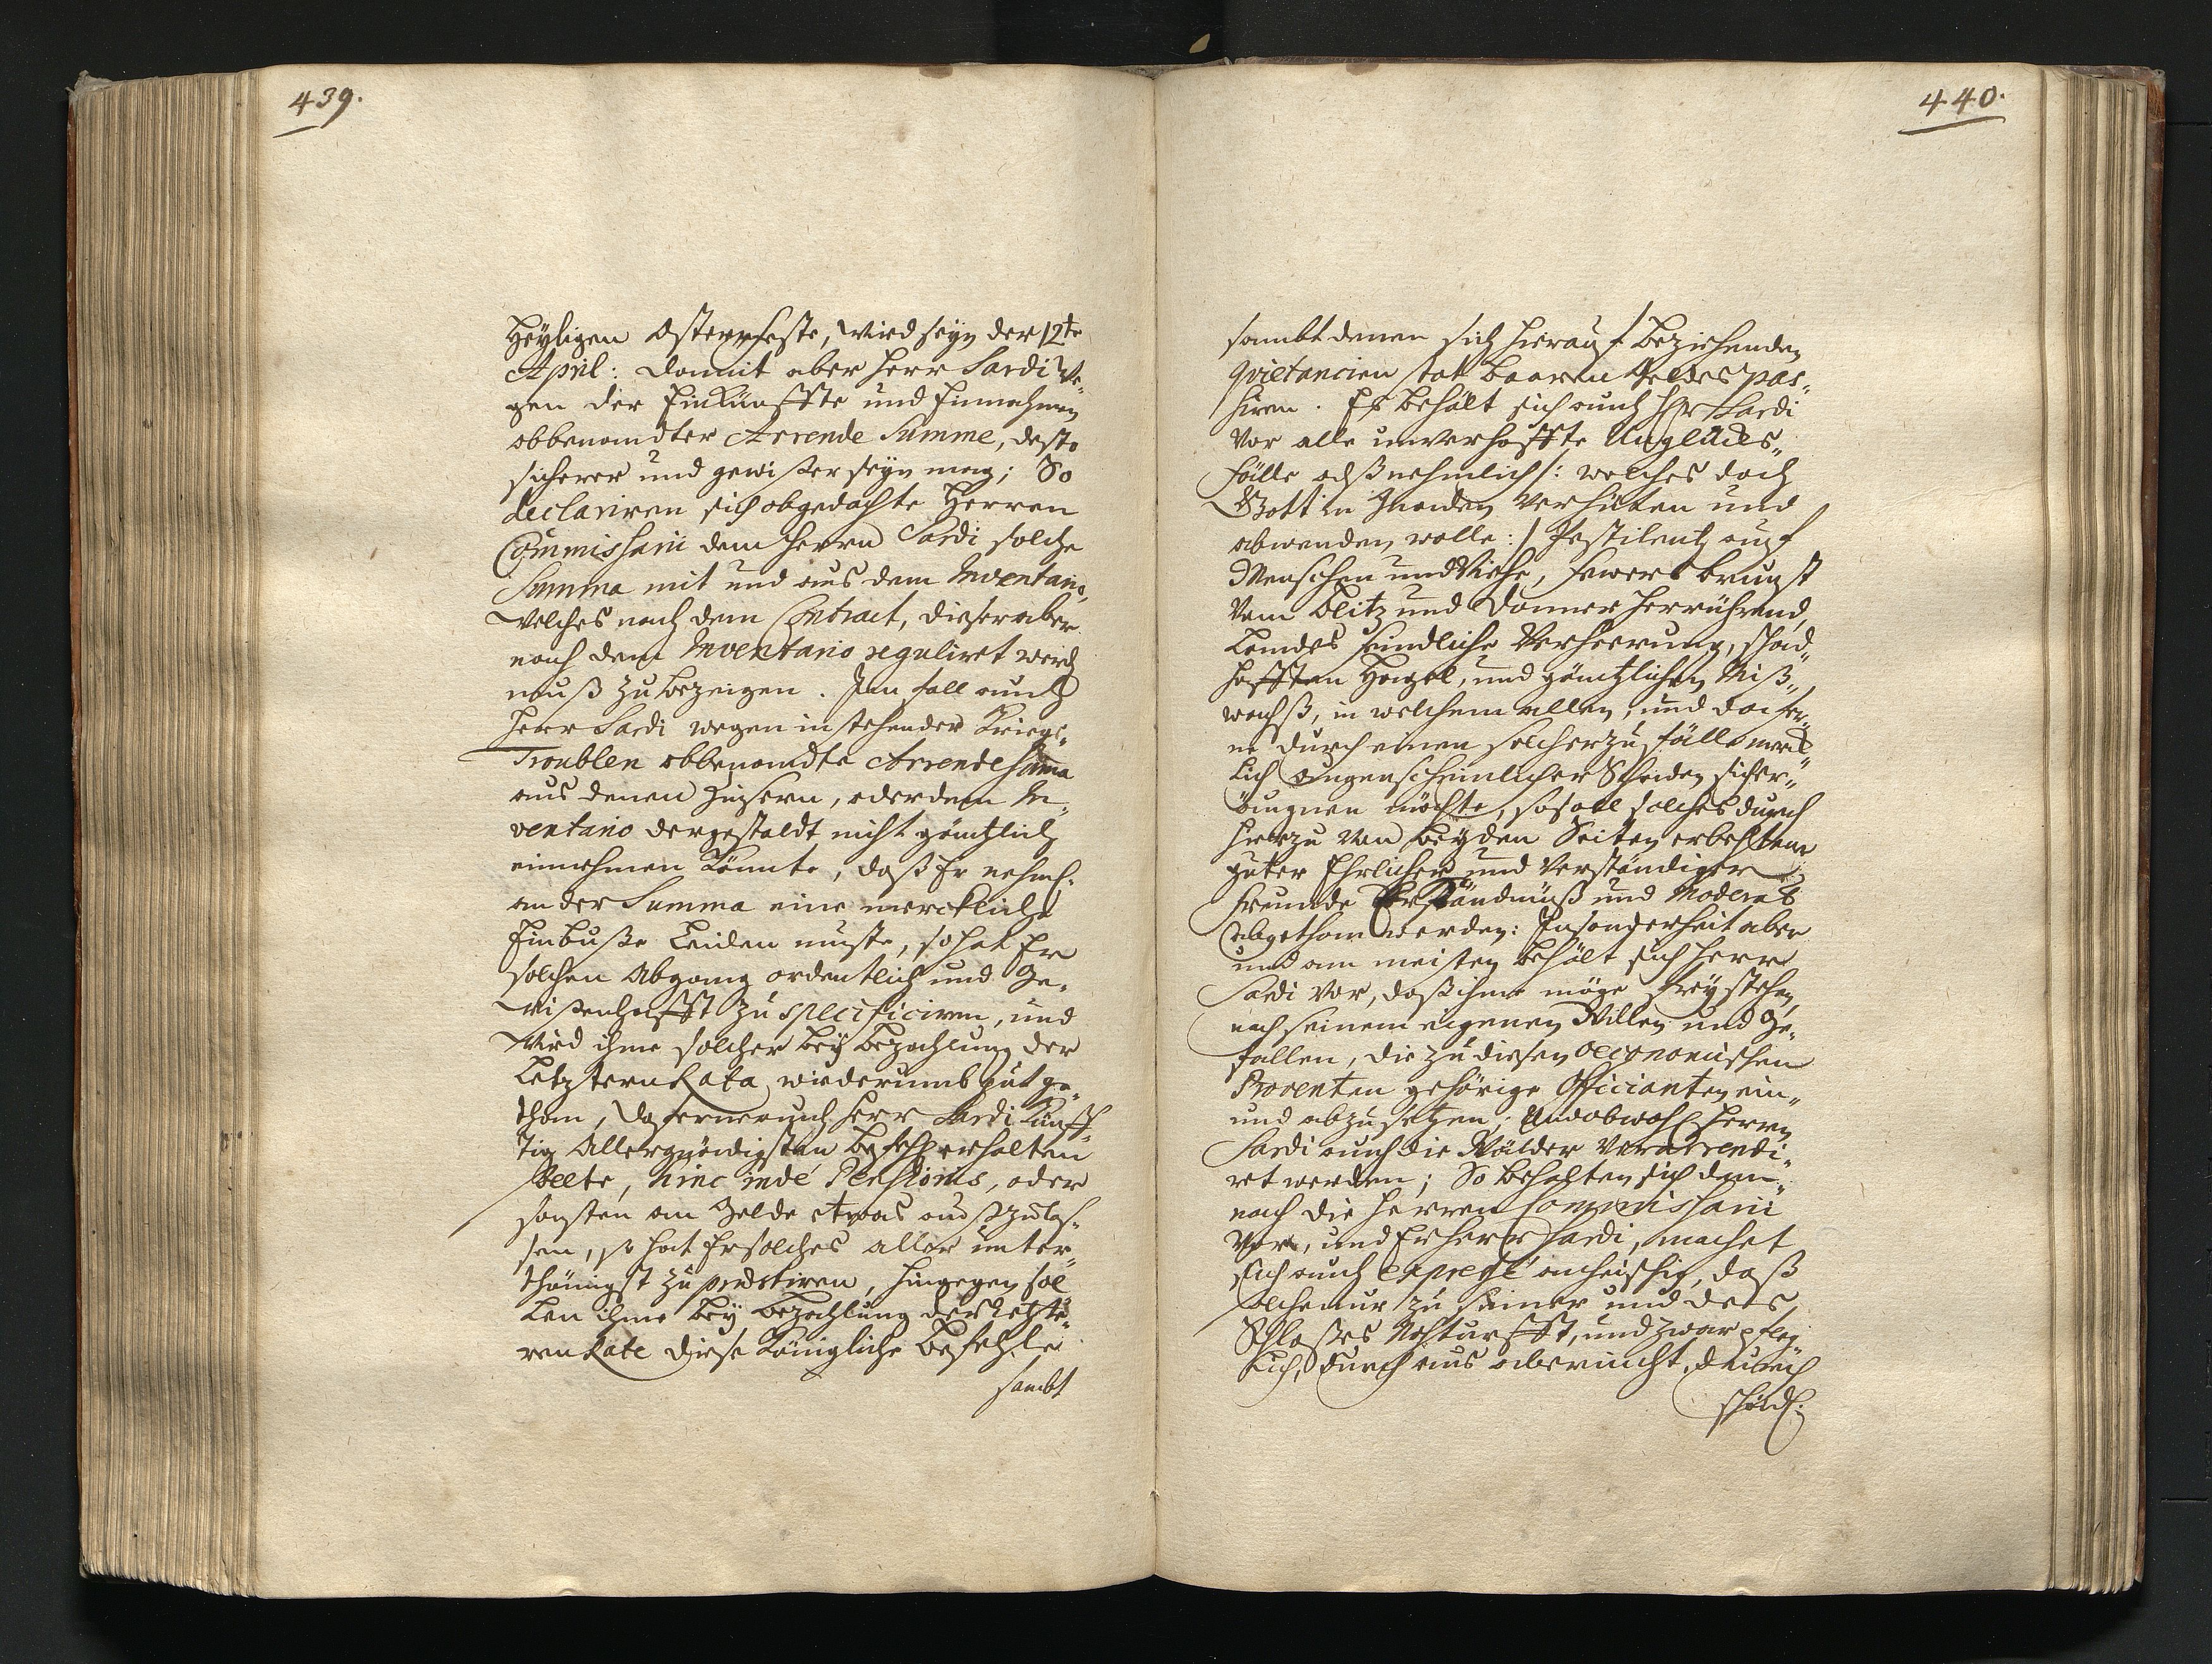 439.
Heyligen Osterfeste, wird seyn der 12te
April: damit aber Herr Sardi we-
gen der Einkünffte und Einnahmen
obbenandter Arrende Summe, desto
sicherer und gewißer seyn mag; So
declariren sich obgedachte Herren
Commissarii dem Herrn Sardi solche
Summa mit und aus dem Inventario,
welches nach dem Contract, dieser aber
nach dem Inventario reguliret werden
muß zu bezeigen. Im fall auch
Herr Sardi wegen instehender Kriegs-
Troublen obbenandte Arrende Summa
aus denen Häusern, oder dem In-
ventario dergestaldt nicht gäntzlich
einnehmen könnte, daß Er nehml.
an der Summa eine merckliche
Einbuße leiden müste, so hat Er
solchen Abgang ordentlich und Ge-
wißenhafft zu specificiren, und
wird ihme solcher bey Bezahlung der
Letztern Rata wiederumb gut ge-
than, daferne auch Herr Sardi künff-
tig Allergnädigsten Befehl erhalten
sollte, hinc inde Pensiones, oder
sonsten an Gelde etwas auszulas-
sen, so hat Er solches aller unter-
thänigst zu praestiren, hingegen sol
len ihme bey Bezahlung der Letzte-
ren Rate diese Königliche Befehle
sambt
440.
sambt denen sich hierauf beziehenden
Qvietancien stat baaren Geldes pas-
siren. Es behält sich auch Hr Sardi
vor alle unverhoffte Unglücks-
fälle alß nehmlich /: welches doch
Gott in Gnaden verhüten und
abwenden wolle :/ Pestilentz auf
Menschen und Viehe, Feuers brunst
vom Blitz und Donner herrührend,
Landes feindliche Verheerung, schad-
hafften Hagel, und gäntzlichen Miß-
wachß, in welchem allen, und dafer-
ne durch einen solcher zufälle merck-
lich augenscheinlicher Schaden sich er-
äugnen möchte, so soll solches durch
hierzu von beyden Seiten erbethene
guter Ehrlicher und Verständiger
Freunde Erkändnüß und Moderat
abgethan werden: Insonderheit aber
und am meisten behält sich Herr
Sardi vor, daß ihme möge freystehen,
nach seinem eigenen Willen und Ge-
fallen, die zu diesen oeconomischen
Proventen gehörige Officianten ein-
und abzusetzen; Und obwohl Herrn
Sardi auch die Wälder verarrendi-
ret werden; So behalten sich dem-
nach die Herren Commissarii
vor, und Er Herr Sardi, machet
sich auch expresse anheischig, daß
solche nur zu seiner und des
Schloßes Nohturfft, und zwar pfleg-
lich, durchaus aber nicht, durch
schädl.